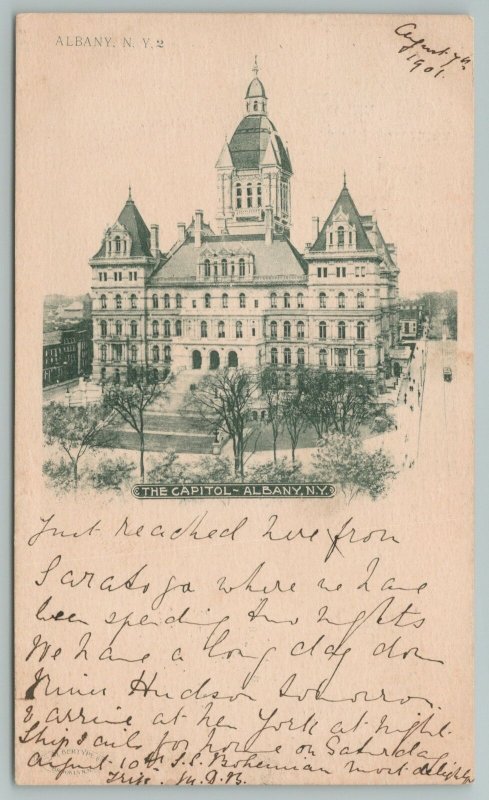 ALBANY, N. Y. 2
August 7th
1901.
THE CAPITOL - ALBANY, N.Y.
Just reached here from
Saratoga where we have
been spending two nights
We have a long day down
River Hudson tomorrow.
& arrive at New York at night.
Ship sails for home on Saturday
August 10th S.S. Bohemian most delightful
Trip.